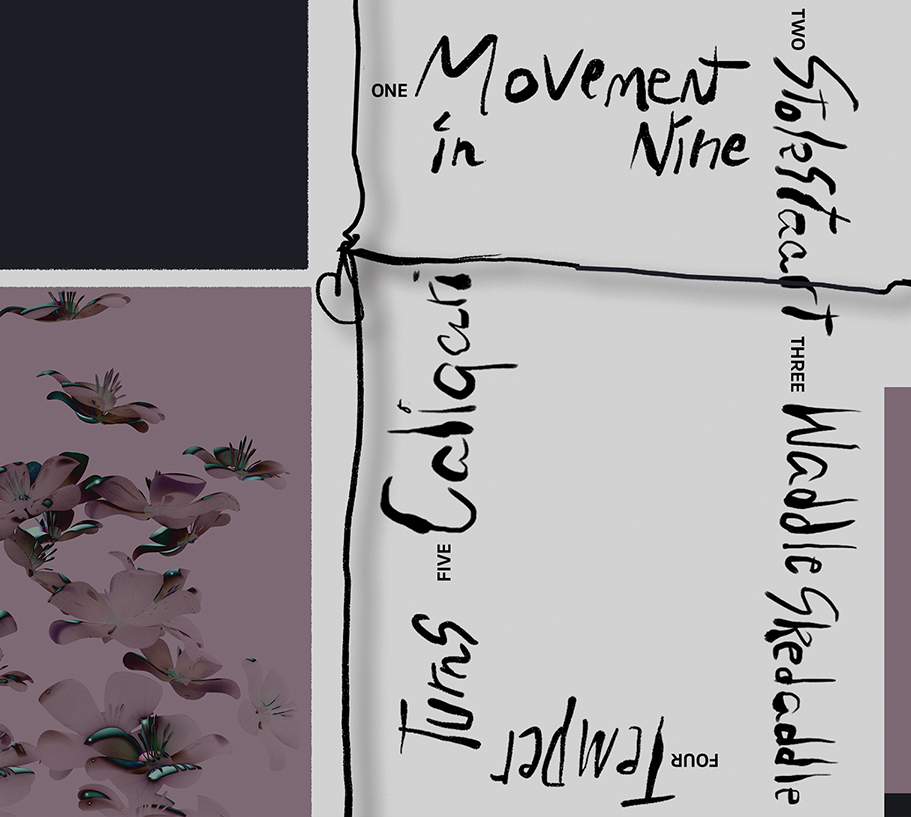 ONE Movement
in Nine
TWO Stolsstaart
THREE Waddle Skedaddle
FOUR Temper
Turns
FIVE Caligari